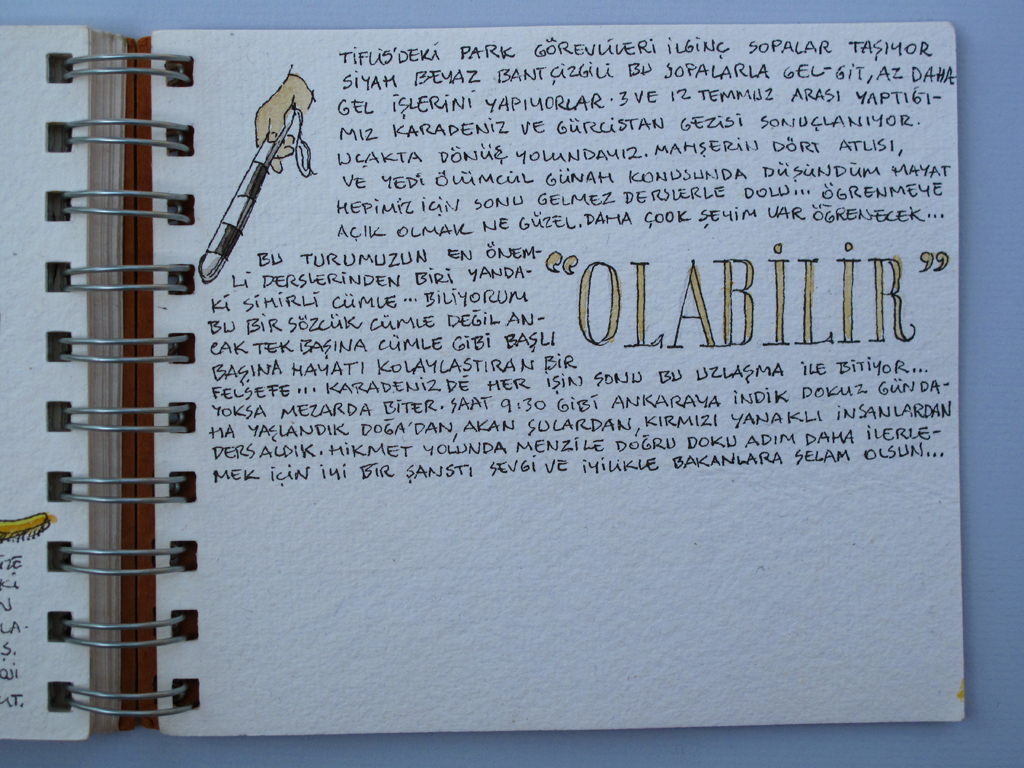 TİFLİS'DEKİ PARK GÖREVLİLERİ İLGİNÇ SOPALAR TAŞIYOR
SİYAH BEYAZ BANT ÇİZGİLİ BU SOPALARLA GEL-GİT, AZ DAHA
GEL İŞLERİNİ YAPIYORLAR. 3 VE 12 TEMMUZ ARASI YAPTIĞI-
MIZ KARADENİZ VE GÜRCİSTAN GEZİSİ SONUÇLANIYOR.
UÇAKTA DÖNÜŞ YOLUNDAYIZ. MAHŞERİN DÖRT ATLISI,
VE YEDİ ÖLÜMCÜL GÜNAH KONUSUNDA DÜŞÜNDÜM HAYAT
HEPİMİZ İÇİN SONU GELMEZ DERSLERLE DOLU... ÖĞRENMEYE
AÇIK OLMAK NE GÜZEL. DAHA ÇOOK ŞEYİM VAR ÖĞRENECEK...
BU TURUMUZUN EN ÖNEM-
Lİ DERSLERİNDEN BİRİ YANDA-
Kİ SİHİRLİ CÜMLE... BİLİYORUM
BU BİR SÖZCÜK CÜMLE DEĞİL AN-
CAK TEK BAŞINA CÜMLE GİBİ BAŞLI
BAŞINA HAYATI KOLAYLAŞTIRAN BİR
"OLABİLİR"
FELSEFE... KARADENİZDE HER İŞİN SONU BU UZLAŞMA İLE BİTİYOR...
YOKSA MEZARDA BİTER. SAAT 9:30 GİBİ ANKARAYA İNDİK DOKUZ GÜN DA-
HA YAŞLANDIK DOĞA'DAN, AKAN SULARDAN, KIRMIZI YANAKLI İNSANLARDAN
DERS ALDIK. HİKMET YOLUNDA MENZİLE DOĞRU DOKU ADIM DAHA İLERLE-
MEK İÇİN İYİ BİR ŞANSTI SEVGİ VE İYİLİKLE BAKANLARA SELAM OLSUN...